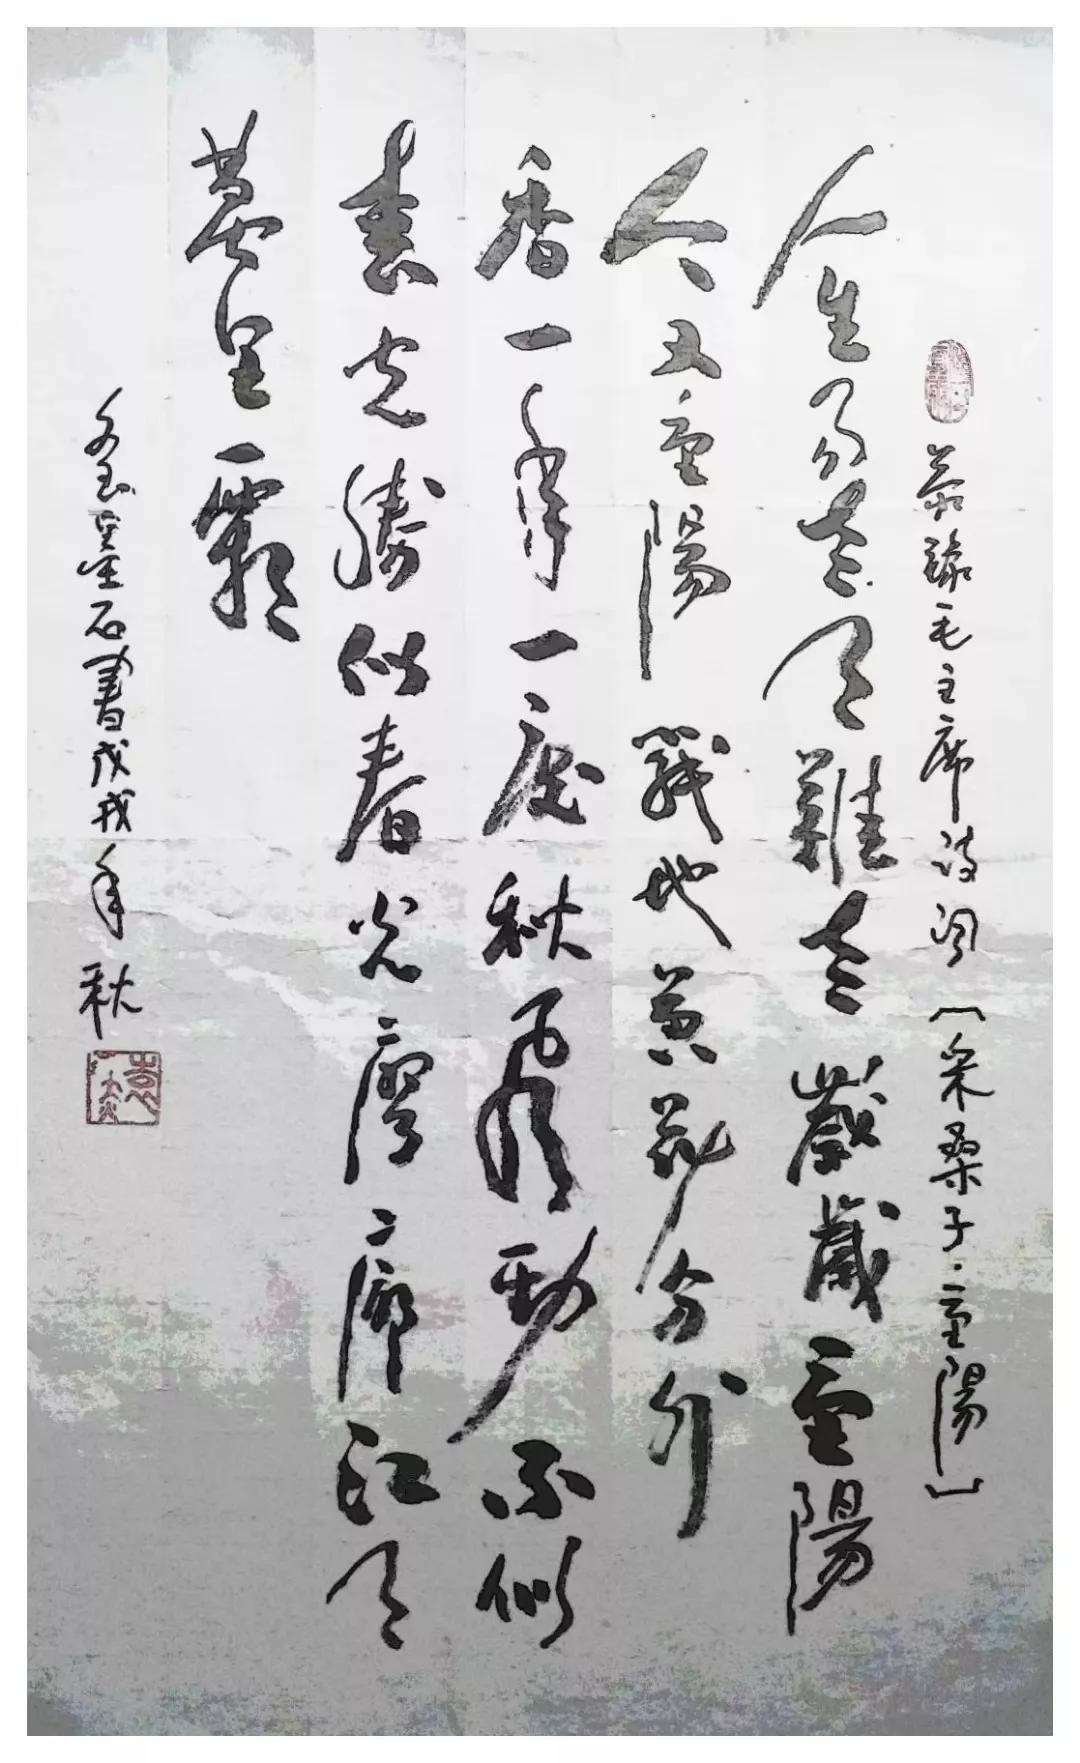 恭錄毛主席詩詞〔采桑子·重陽〕
人生易老天難老歲歲重陽
今又重陽戰地黃花分外
香一年一度秋風勁不似
春光勝似春光廖廓江天
萬里霜
石書戊戌年秋